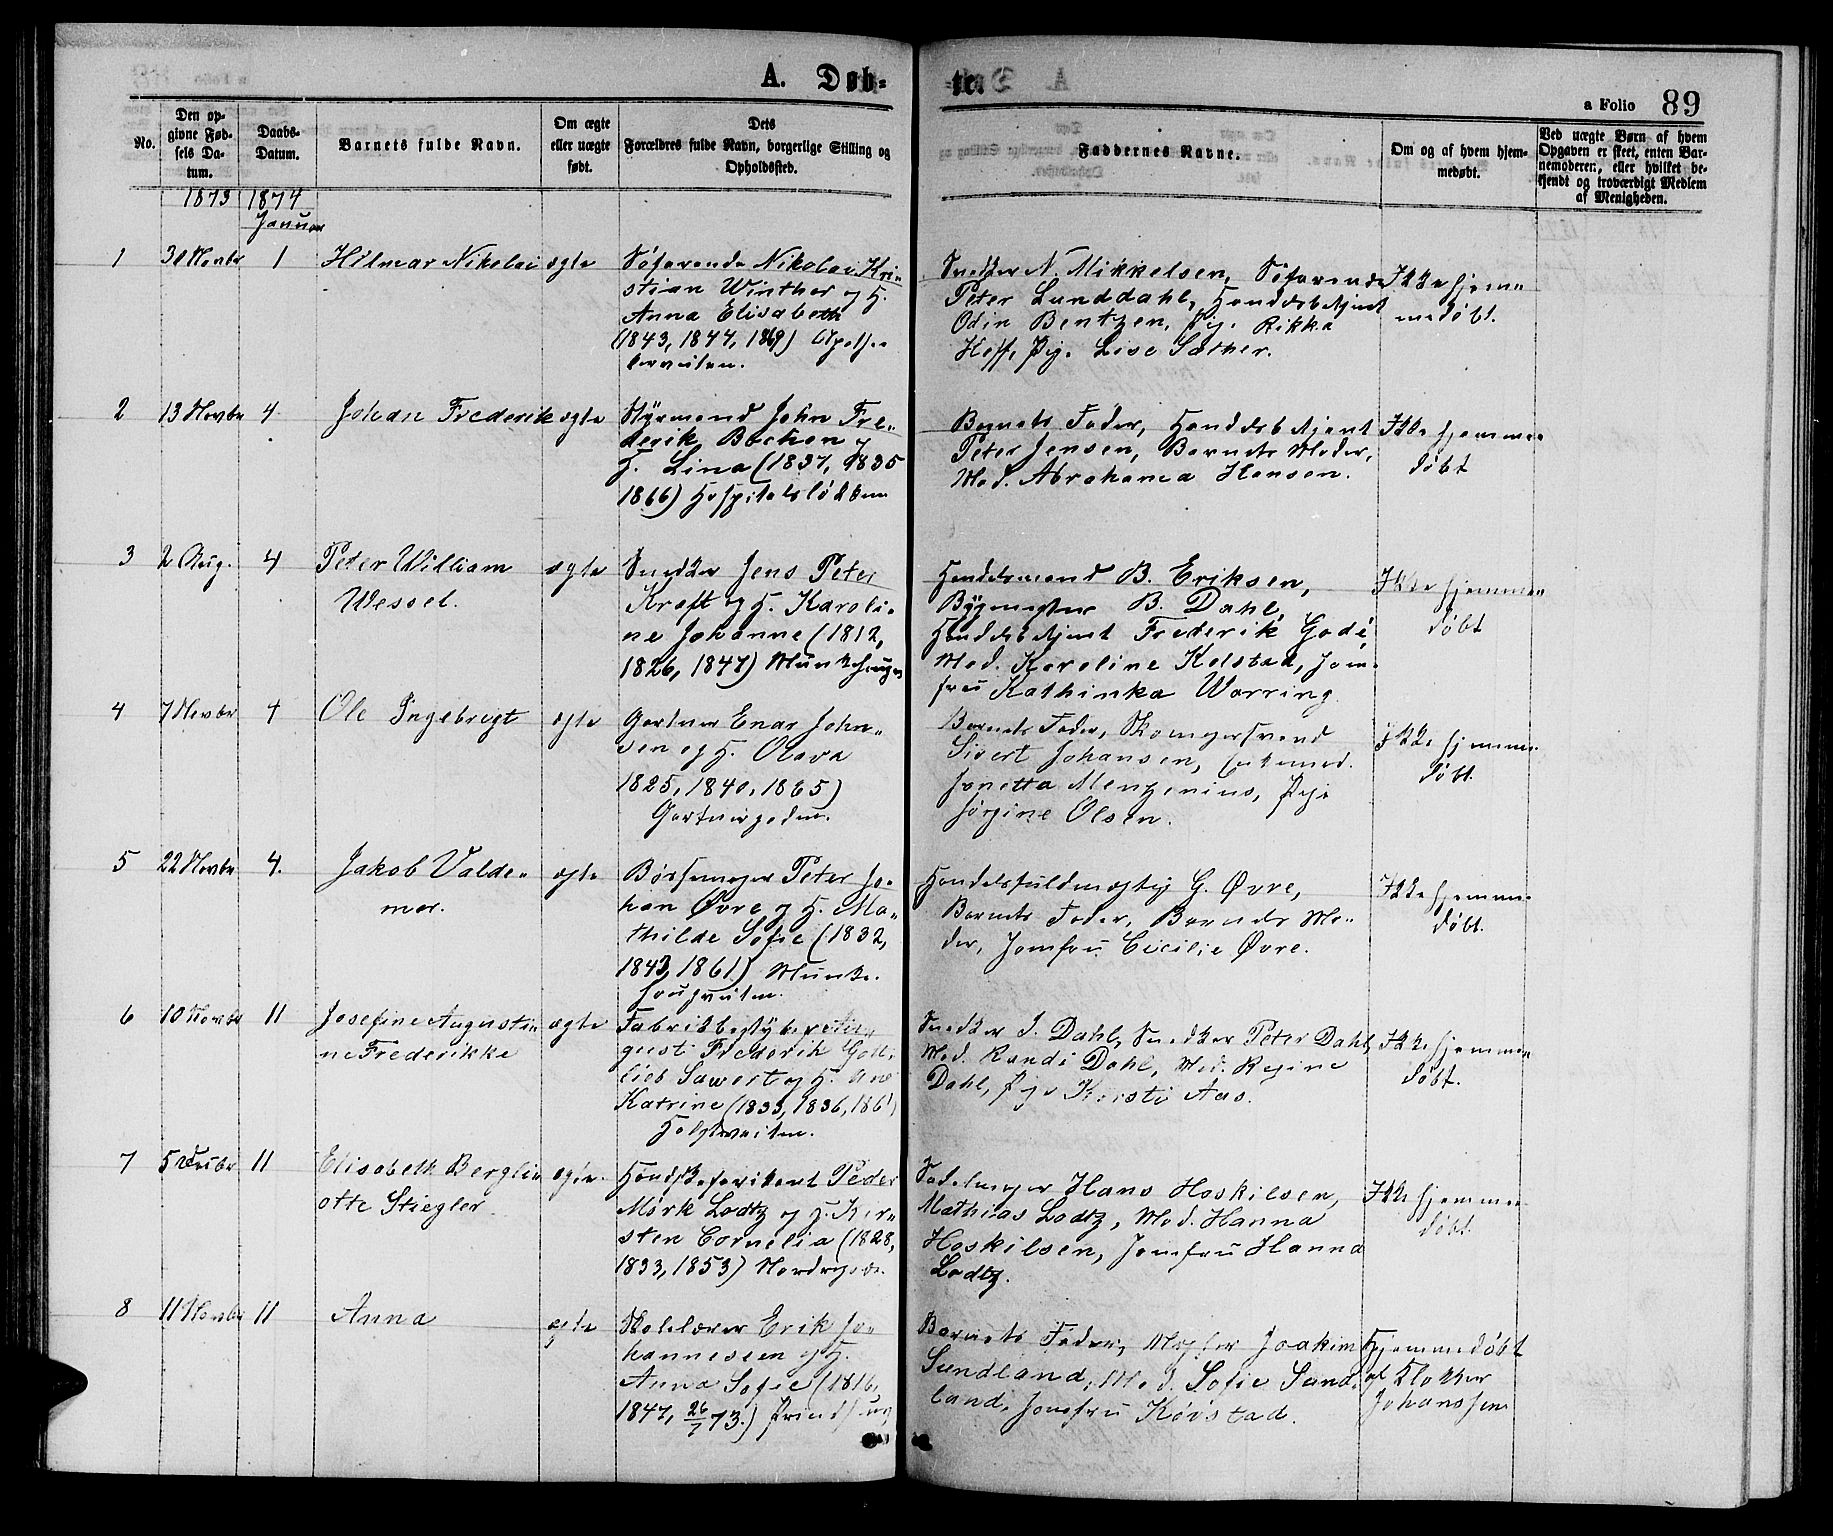 A. Døb-
te.
a Folio 89
No.
Den op-
givne Fød-
sels Da-
tum.
Daabs-
Datum.
Barnets fulde Navn.
Om ægte
eller uægte
født.
Dets
Forældres fulde Navn, borgerlige Stilling og
Opholdssted.
Faddernes Navne.
Om og af hvem hjem-
medøbt.
Ved uægte Børn af hvem
Opgaven er skeet, enten Bar-
nemoderen, eller hvilket be-
kjendt og troværdigt Medlem
af Menigheden.
1873 1874
Januar
1 30 Novbr 1 Hilmar Nikolai ægte
Söfarende Nikolai Kri-
stian Winther og H.
Anna Elisabeth
(1843, 1847, 1869)
Snedker N. Mikkelsen, Söfarende
Peter Lunddahl, Handelsbetjent
Odin Bentzen, Pig. Rikka
Hoff, Pig. Lise Sæther.
Ikke hjem-
medøbt.
2 13 Novbr 4 Johan Frederik ægte
Styrmand John Fre-
derik Bochon og
H. Lina (1837, 1835
1866) Hospitalsløkken
Barnets Fader, Handelsbetjent
Peter Jensen, Barnets Moder,
Mad. Abrahama Hansen.
Ikke hjemme-
døbt
3 2 Aug. 4 Peter William
Wessel.
ægte
Snedker Jens Peter
Kraft og H. Karoli-
ne Johanne (1812,
1826, 1847) Munkhaugen
Handelsmand B. Eriksen,
Bygmester B. Dahl,
Handelsbetjent Frederik Gade,
Mad. Karoline Kolstad, Jom-
fru Kathinka Warring.
Ikke hjemme-
døbt
4 7 Novbr 4 Ole Ingebrigt ægte
Gartner Enar John-
sen og H. Olava
1825, 1840, 1865)
Gartnergaden.
Barnets Fader, Skomagersvend
Sivert Johansen, Enkemad.
Janetta Mentzenius, Pige
Jörgine Olsen.
Ikke hjemme-
døbt.
5 22 Novbr 4. Jakob Valde-
mar.
ægte
Børsemager Peter Jo-
han Øvre og H. Ma-
thilde Sofie (1832,
1843, 1861) Munke-
haugveiten.
Handelsfuldmægtig G. Øvre,
Barnets Fader, Barnets Mo-
der, Jomfru Cicilie Øvre.
Ikke hjemme-
døbt.
6 10 Novbr 11 Josefine Augusti-
ne Frederikke
ægte
Fabrikbestyrer Au-
gust Frederik Gott-
lieb Sawert og H. Ane
Katrine (1833, 1836, 1861)
Snedker J. Dahl, Snedker Peter Dahl,
Mad. Randi Dahl, Mad. Regine
Dahl, Pige Kirsti Aas.
Ikke hjemme-
døbt.
7 5 Decbr 11 Elisabeth Bergli-
otte Stiegler
ægte.
Handskefabrikant Peder
Mørk Lodtz og H. Kir-
sten Cornelia (1828,
1833, 1853) Nordregade.
Sadelmager Hans Hoskilsen,
Mathias Lodtz, Mad. Hanna
Hoskilsen, Jomfru Hanna
Lodtz.
Ikke hjemme-
døbt
8 11 Novbr 11 Anna
ægte
Skolelærer Erik Jo-
hannessen og H.
Anna Sofie (1816,
1847, 26/7 73.)
Barnets Fader, Mægler Joakim
Sundland, Mad. Sofie Sund-
land, Jomfru Køvstad.
Hjemmedøbt
af Klokker
Johanssen